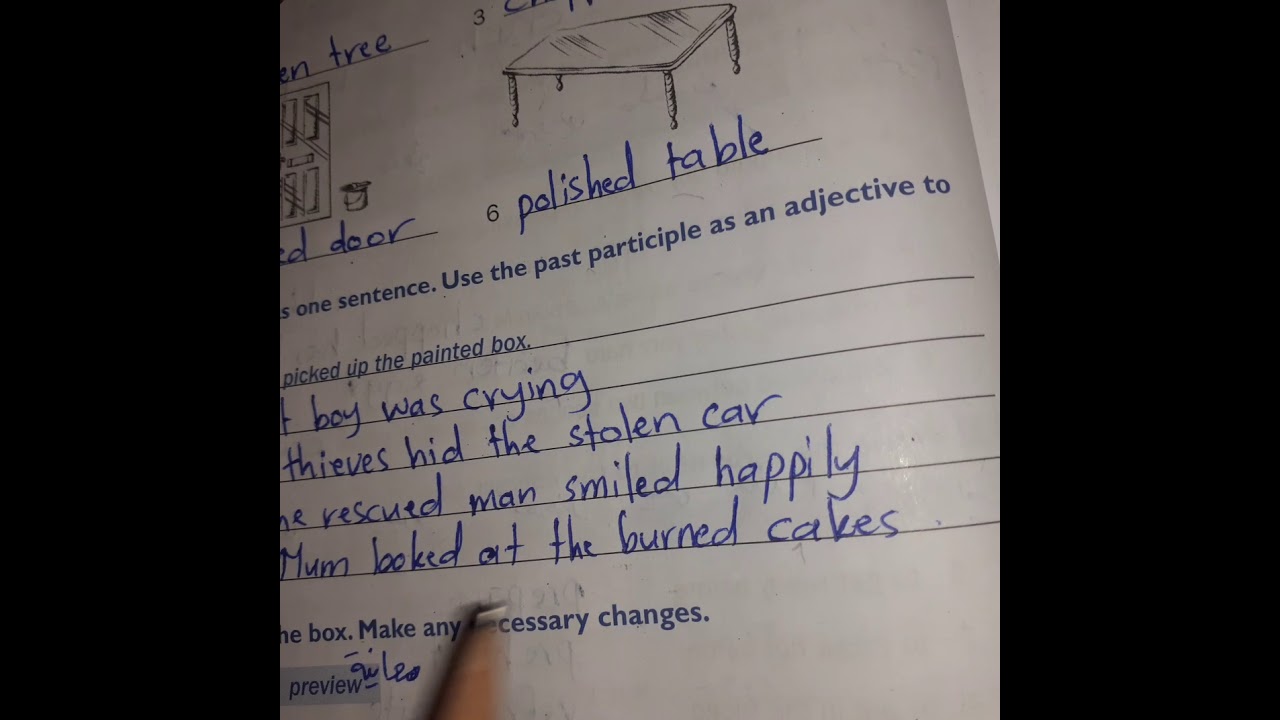 3
en tree
polished table
6
ed door
s one sentence. Use the past participle as an adjective to
picked up the painted box.
t boy was crying
thieves hid the stolen car
he rescued man smiled happily
Mum looked at the burned cakes.
he box. Make any necessary changes.
preview